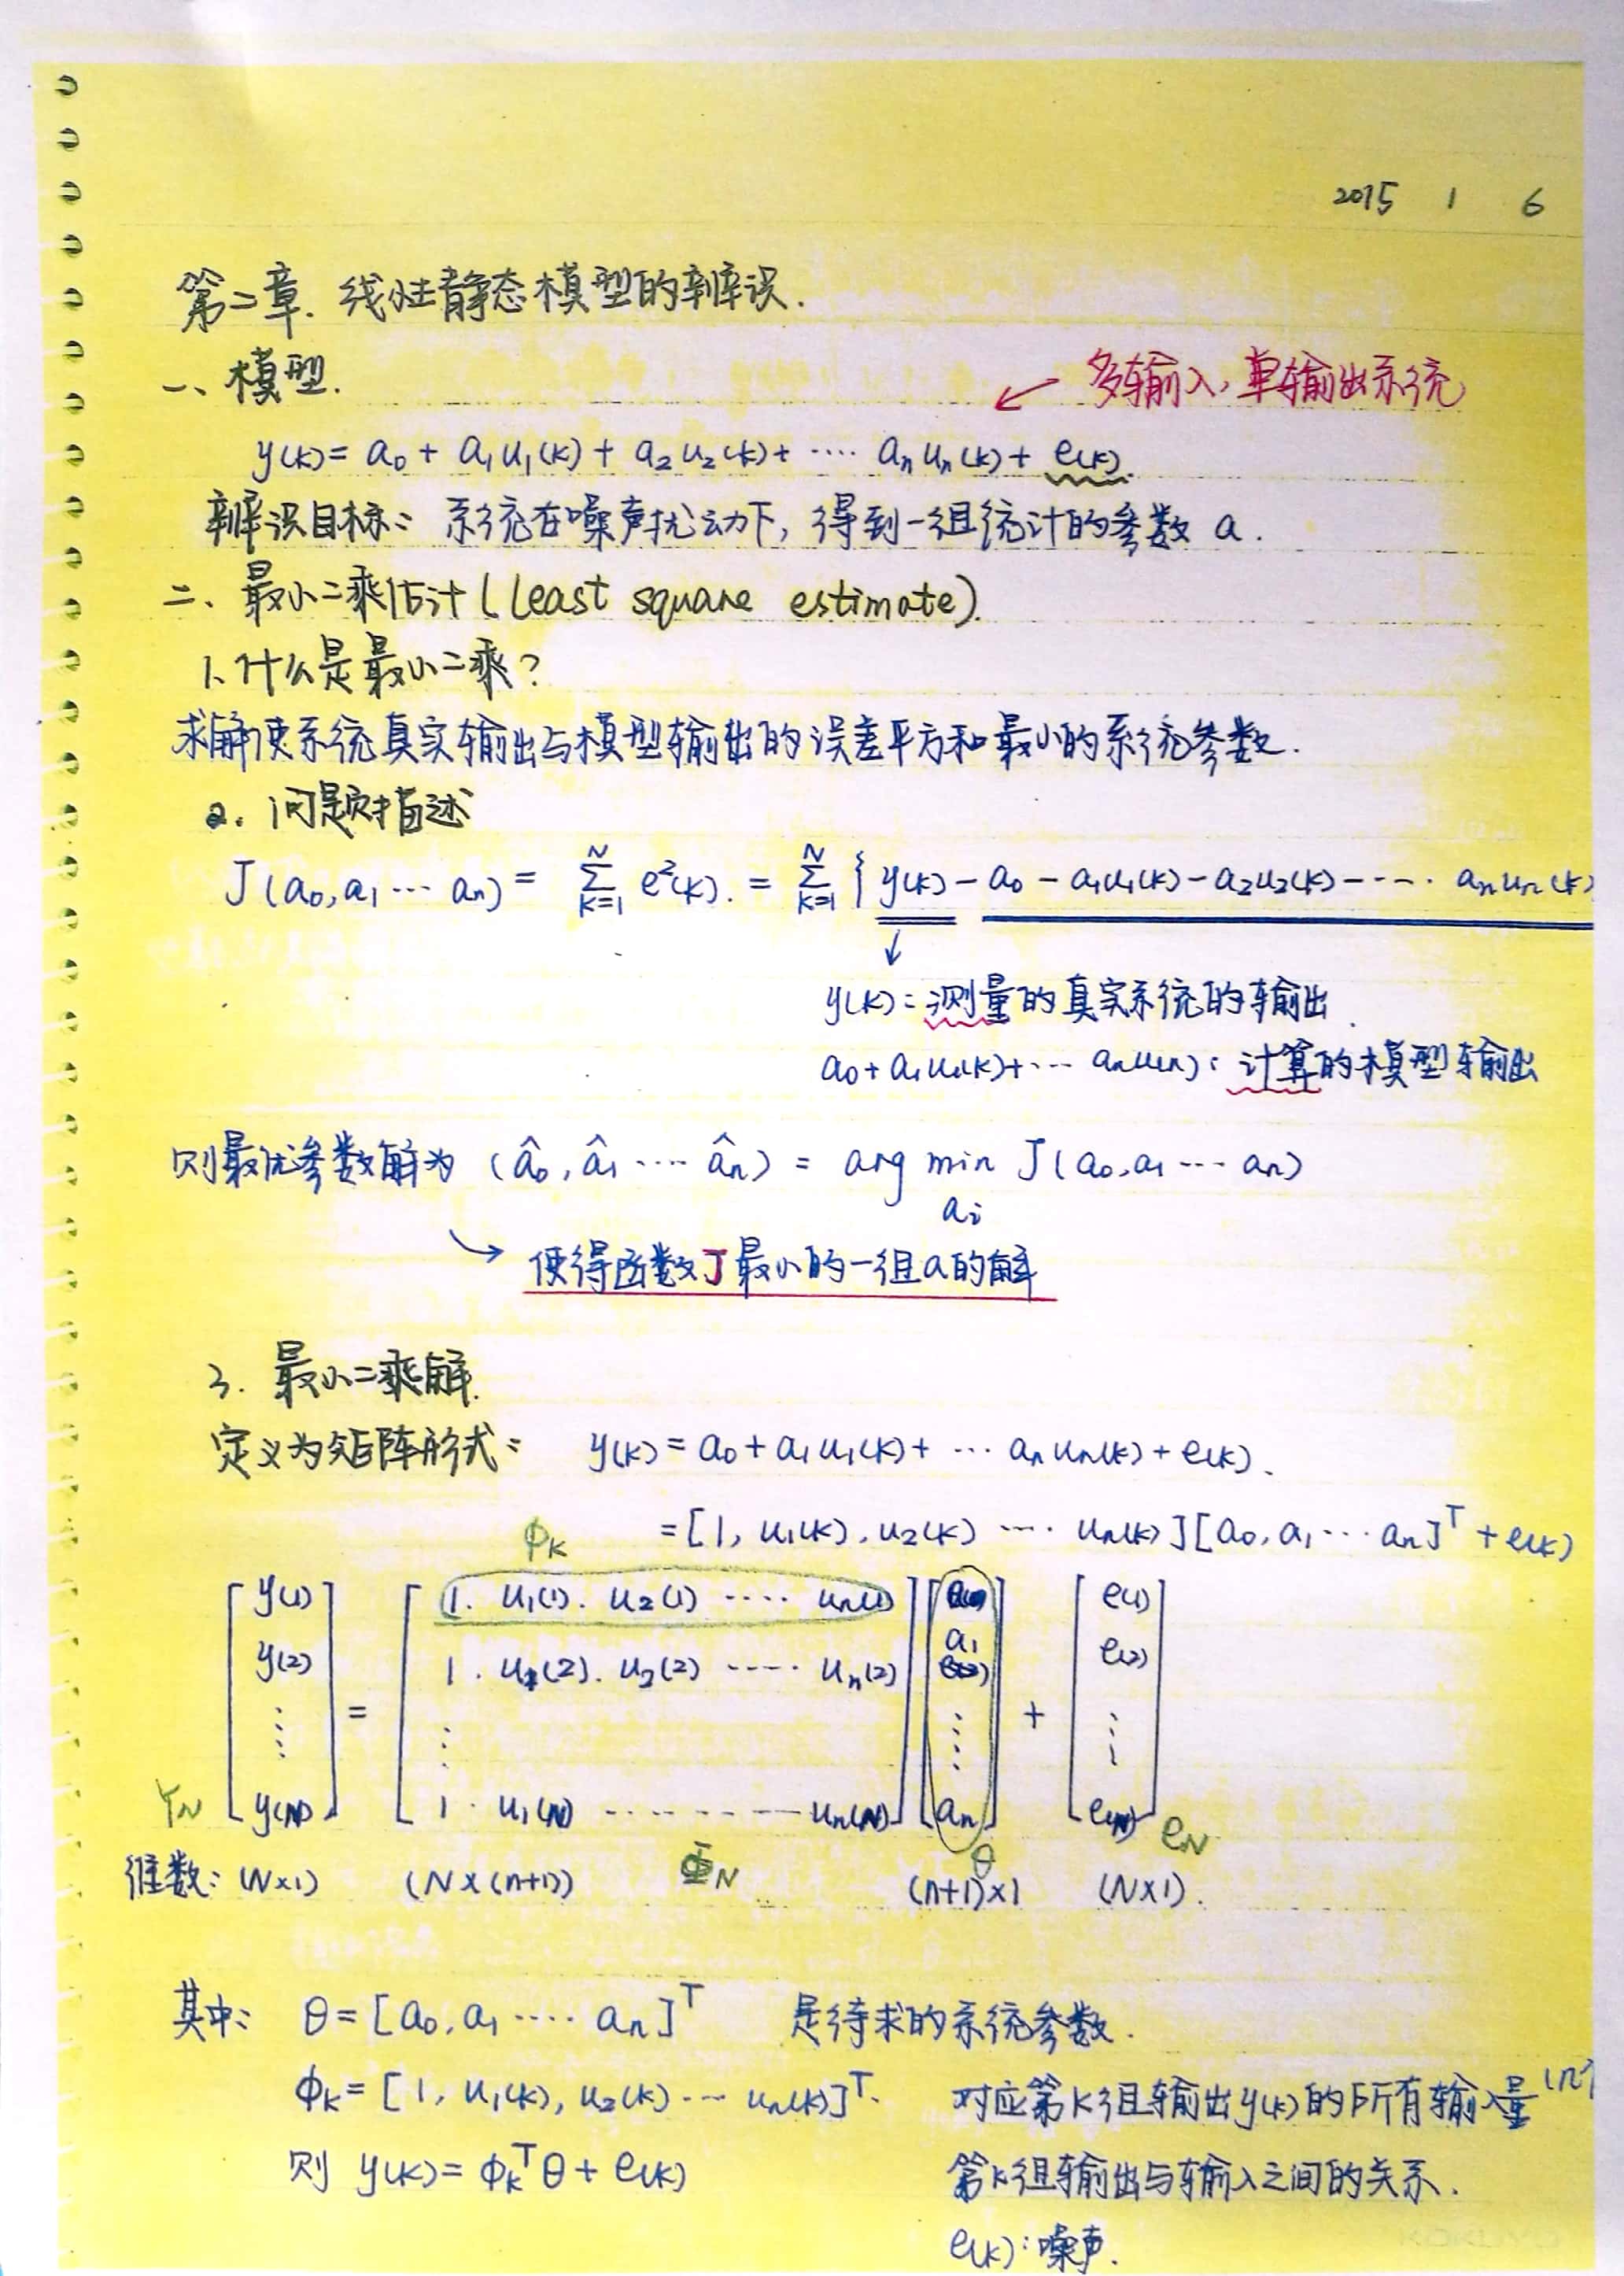 2015 1 6
第二章. 线性静态模型的辨识.
一、模型.
多输入,单输出系统
y(k)= a₀ + a₁u₁(k)+ a₂u₂(k)+ ···· aₙuₙ(k)+ e(k).
辨识目标: 系统在噪声扰动下, 得到一组统计的参数 a.
二、最小二乘估计(least square estimate).
1、什么是最小二乘?
求解使系统真实输出与模型输出的误差平方和最小的系统参数.
2. 问题描述
J(a₀,a₁ ··· aₙ) = Σ_{k=1}^{N} e²(k). = Σ_{k=1}^{N} { y(k) - a₀ - a₁u₁(k) - a₂u₂(k) - ···· aₙuₙ(k)
↓
y(k): 测量的真实系统的输出.
a₀+a₁u₁(k)+··· aₙu(n): 计算的模型输出
则最优参数解为 (â₀, â₁ ···· âₙ) = arg min J(a₀,a₁ ··· aₙ)
aᵢ
→ 使得函数J最小的一组a的解
3. 最小二乘解.
定义为矩阵形式: y(k) = a₀+a₁u₁(k)+ ··· aₙuₙ(k)+e(k).
ϕk = [1, u₁(k), u₂(k) ···· uₙ(k)][a₀, a₁ ··· aₙ]ᵀ + e(k)
y(1) 1. u₁(1). u₂(1) ····· uₙ(1) e(1)
y(2) = 1. u₁(2). u₂(2) ····· uₙ(2) a₁ + e(2)
⋮ ⋮ ⋮ ⋮
Y_N y(N) 1. u₁(N) ········ uₙ(N) aₙ e(N) e_N
维数: (N×1) (N×(n+1)) Φ_N θ (n+1)×1 (N×1).
其中: θ = [a₀, a₁ ···· aₙ]ᵀ 是待求的系统参数.
ϕk = [1, u₁(k), u₂(k) ··· uₙ(k)]ᵀ. 对应第k组输出y(k)的所有输入量(n个
则 y(k) = ϕkᵀθ + e(k) 第k组输出与输入之间的关系.
e(k): 噪声.